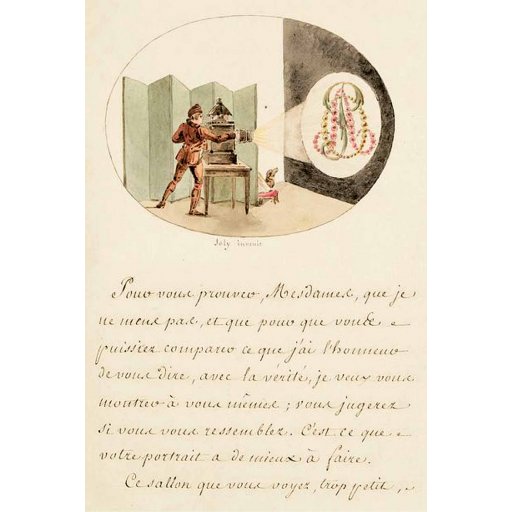 Joly invenit
Pour vous prouver, Mesdames, que je
ne mens pas, et que pour que vous
puissiez comparer ce que j'ai l'honneur
de vous dire, avec la vérité, je veux vous
montrer à vous mêmes ; vous jugerez
si vous vous ressemblez. C'est ce que
votre portrait a de mieux à faire.
Ce sallon que vous voyez, trop petit,